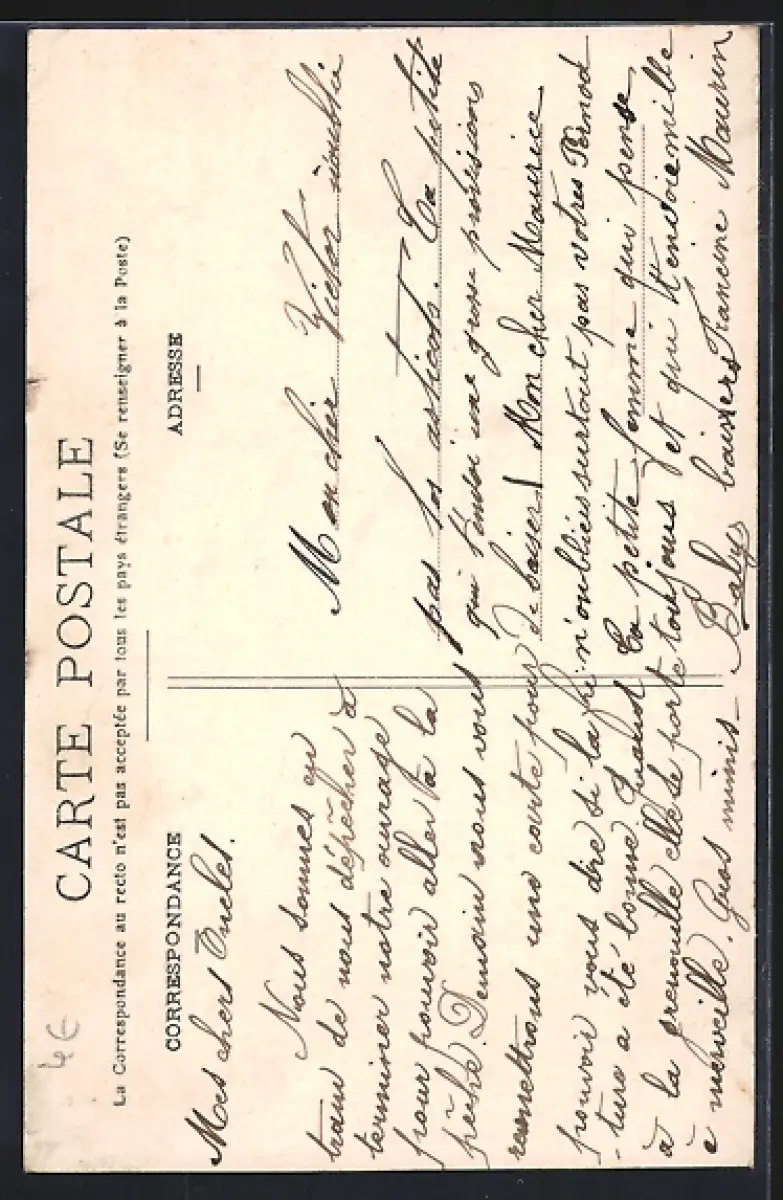 CARTE POSTALE
La Correspondance au recto n'est pas acceptée par tous les pays étrangers (Se renseigner à la Poste)
CORRESPONDANCE
Mes chers Oncles.
Nous sommes en
train de nous dépêcher à
terminer notre ouvrage
pour pouvoir aller à la
pêche. Demain nous vous
remettrons une courte pour
pouvoir vous dire si la fri
-ture a été bonne. Quant
à la grenouille elle se porte
à merveille. Gros mimis. Baby
ADRESSE
Mon cher Victor n'oublie
pas les asticots. Ta petite
qui t'envoi une grosse provisions
de baiser! Mon cher Maurice
n'oublies surtout pas votres Pernod
Ta petite femme qui pense
toujours et qui t'envoie mille
baisers Francine Maurin
4€